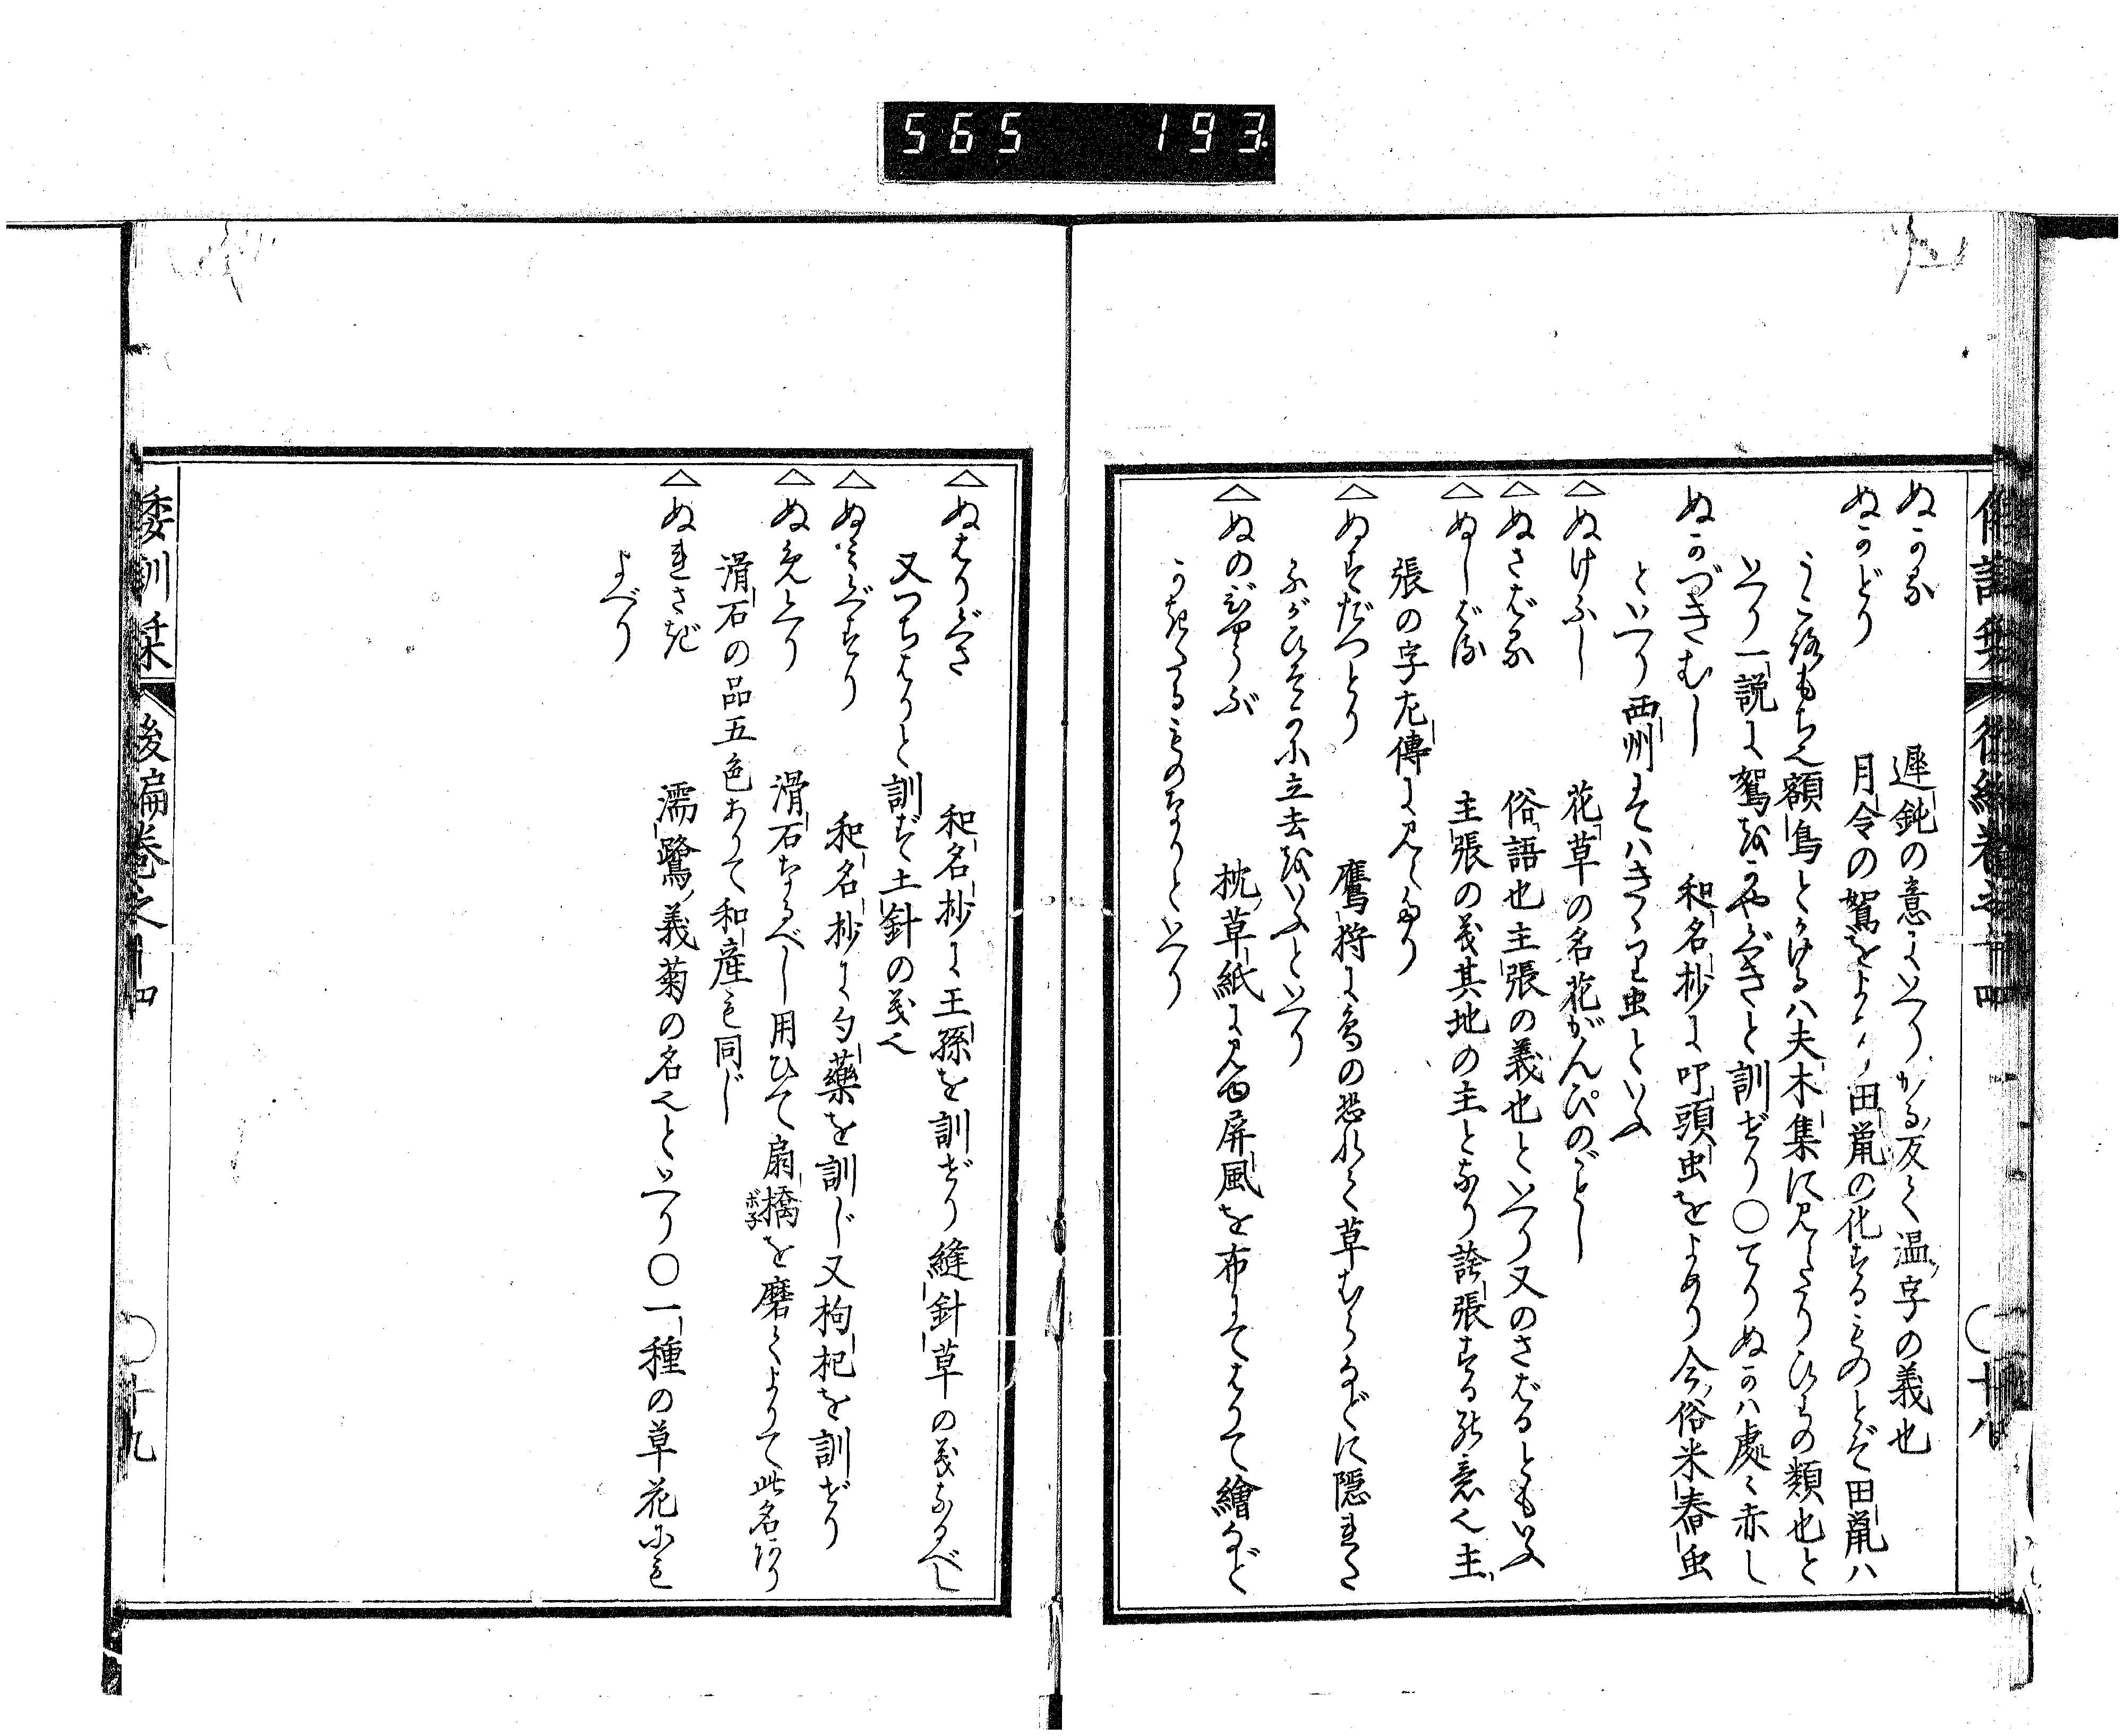 565 193
ぬかる 遲鈍の意にいへりかる反く温字の義也
ぬかどり 月令の鴽をよめり田鼠の化するものとぞ田鼠ハ
うころもち也額鳥とかけるハ夫木集に見えたりひばりの類也と
いへり一説に鴽をかやくきと訓ぜり〇てりぬかハ處々赤し
ぬかづきむし 和名抄に叩頭虫をよめり今俗米舂虫
といへり西州にてハきこり虫といふ
△ぬけふし 花草の名花がんぴのごとし
△ぬさばる 俗語也主張の義也といへり又のさばるともいふ
△ぬしばる 主張の義其地の主となり誇張する意也主
張の字左傳に見ゆ
△ぬすだつとり 鷹狩に鳥の恐れて草むらなどに隱れた
るがひそかに立去をいふといへり
△ぬのびやうぶ 枕草紙に見ゆ屏風を布にてはりて繪など
かきたるものなりといへり
△ぬはりぐさ 和名抄に王孫を訓ぜり縫針草の義なるべし
又つちはりと訓ず土針の義也
△ぬみぐすり 和名抄に勺藥を訓じ又枸杞を訓ぜり
△ぬめいし 滑石なるべし用ひて扇橋ボ子を磨くよりて此名あり
滑石の品五色ありて和産も同じ
△ぬれさぎ 濡鷺ノ義菊の名也といへり〇一種の草花にも
よべり
倭訓栞 後編巻之十四 〇十八
倭訓栞 後編巻之十四 〇十九